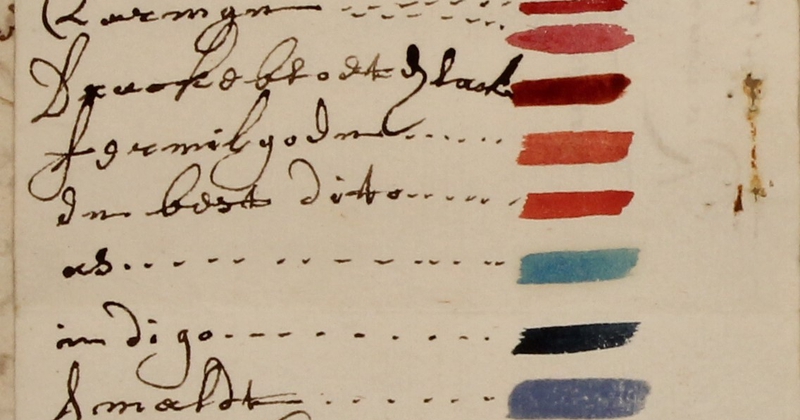 Carmyn
Drackebloedt Lack
fermilyoen
den best dito
as
indigo
Smaldt